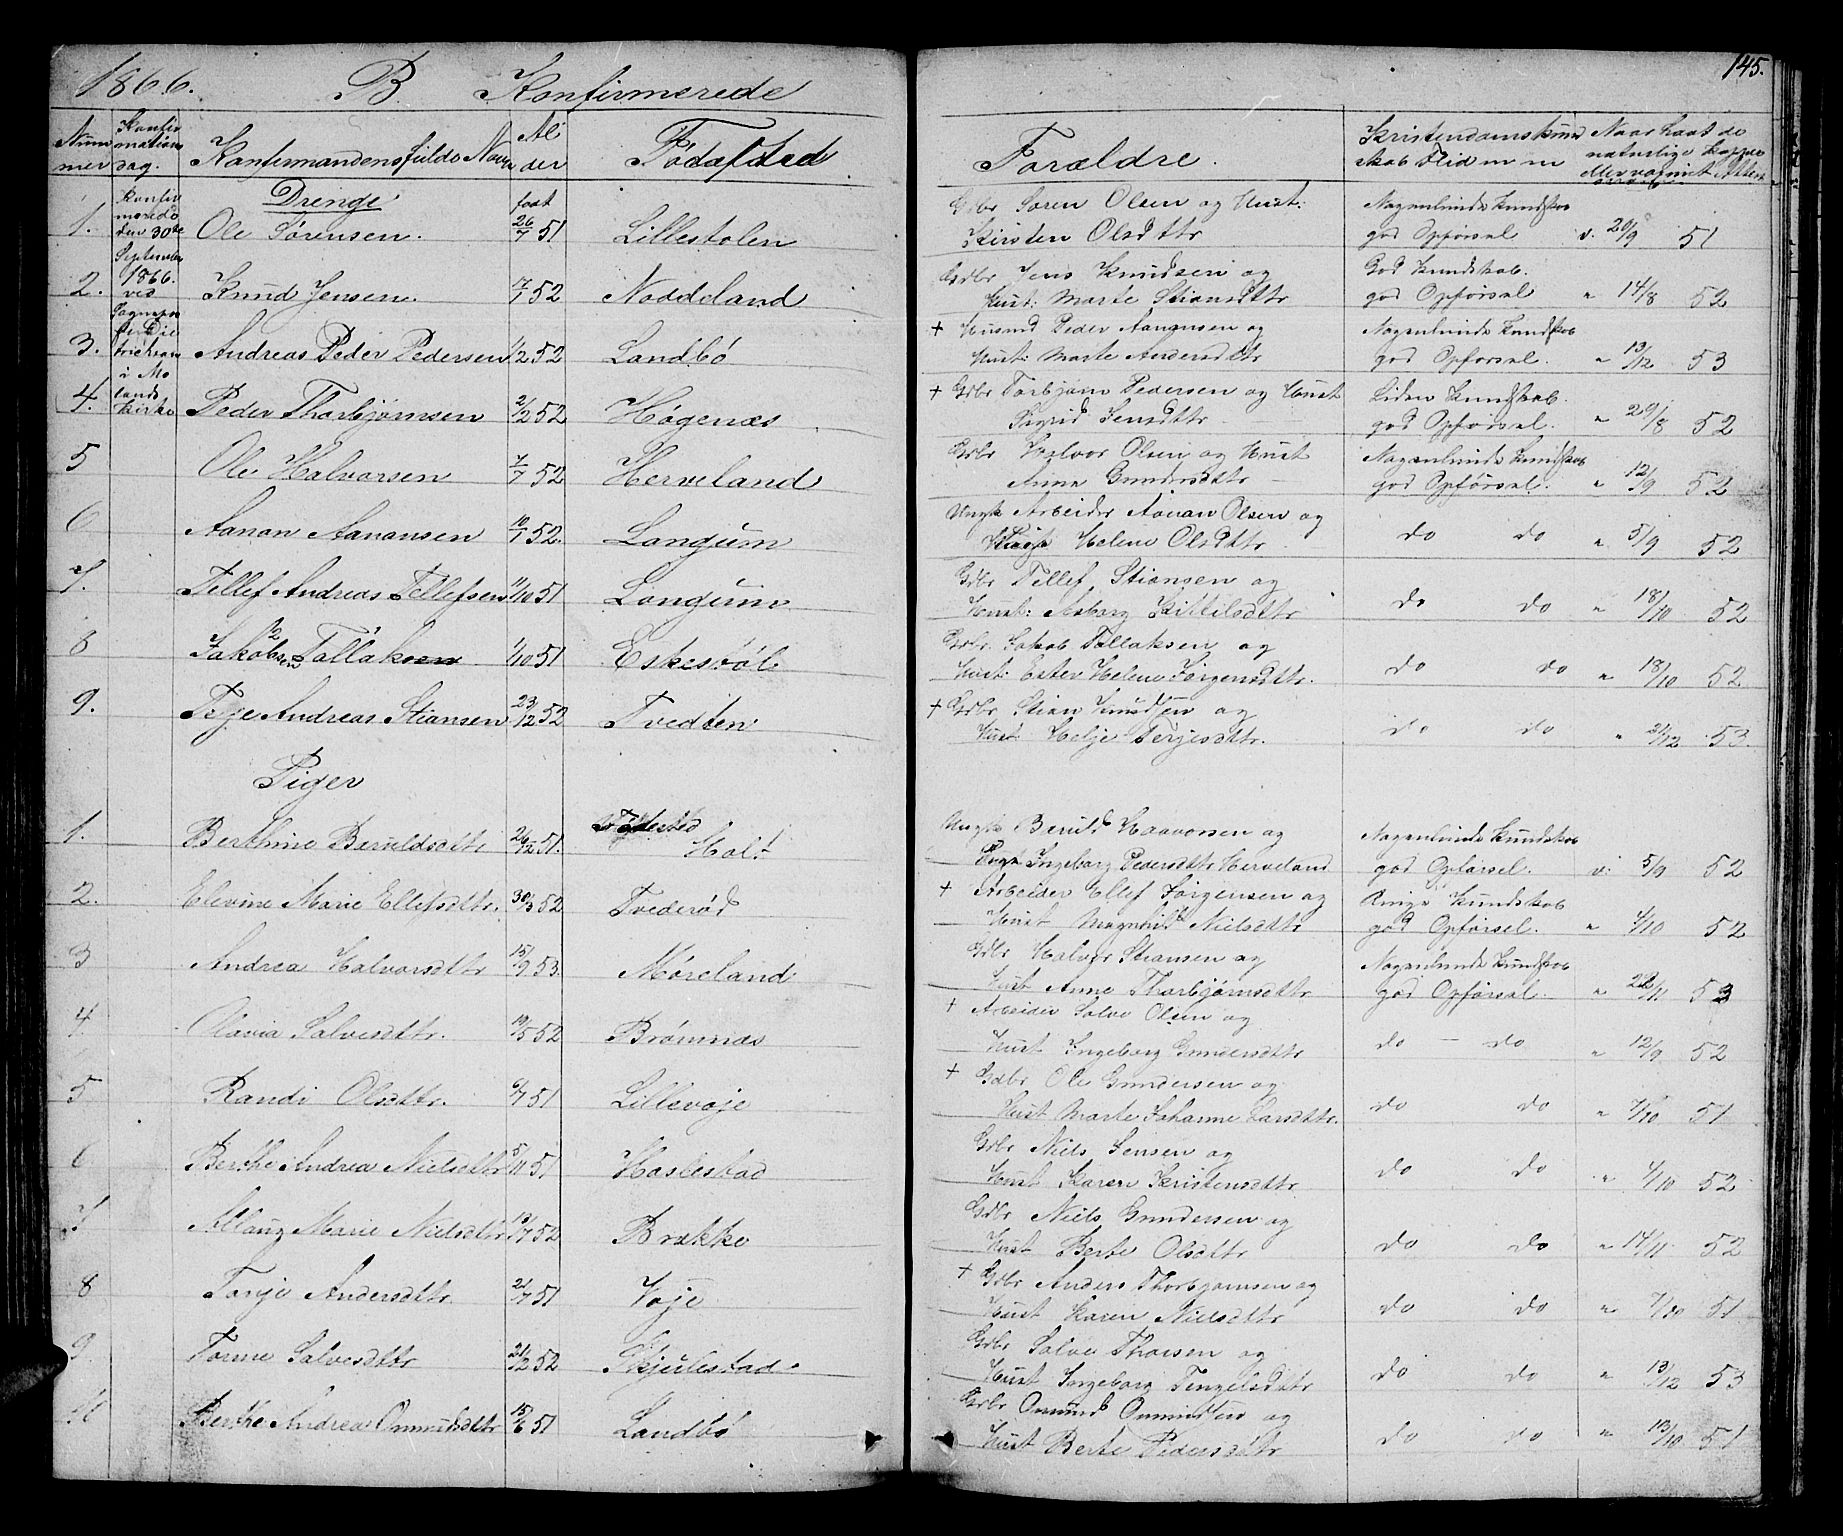 1866. B Konfirmerede
145.
Nummer Konfirmations dag. Konfirmandens fulde Navn Alder Fødested
Forældre. Kristendomskundskab Flid m m Naar havt de naturlige Kopper eller vaccineret Attest
Konfirmerede den 30te September 1866. ved i Molands Kirke
Drenge født
1. Ole Sørensen. 26/7 51 Lillestolen
Gdbr Søren Olsen og Hust:
Kirsten Olsdttr
Nogenlunde Kundskab
god Opførsel v. 20/9 51
2. Knud Jensen. 7/1 52 Noddeland
Gdbr Jens Knudsen og
Hust: Marte Stiansdttr
God Kundskab.
god Opførsel " 14/8 52
3. Andreas Peder Pedersen 1/2 52 Landbø
+ Husmd Peder Aanonsen og
Hust: Marte Andersdttr
Nogenlunde Kundskab
god Opførsel. " 13/12 53
4. Peder Thorbjørnsen 2/2 52 Høgenæs
+ Gdbr Torbjørn Pedersen og Hust
Sigrid Jensdttr
Liden Kundskab.
god Opførsel. " 29/8 52
5 Ole Halvorsen 7/7 52 Herveland
Gdbr Halvor Olsen og Hust
Anne Gundersdttr
Nogenlunde Kundskab
god Opførsel. " 12/9 52
6 Aanon Aanonsen 10/1 52. Longum
Ungk Arbeider Aanon Olsen og
Helene Olsdttr
do do " 5/9 52
7. Tellef Andreas Tellefsen 1/10 51 Longum
Gdbr Tellef Stiansen og
Hust: Asborg Kittilsdttr
do do " 18/10 52
8 Jakobsen Tallak 1/10 51 Eskesbøl
Gdbr. Jakob Tallaksen og
Hust: Ester Helene Jørgensdttr.
do do " 18/10 52
9. Terje Andreas Stiansen 23/12 52 Tvedten
+ Gdbr Stian Knudsen og
Hust Helje Terjesdttr.
do do " 21/12 53.
Piger
1. Berthine Beruldsdttr 26/12 51. Holt
Ungk Beruld Haavorsen og
Pige Ingeborg Pedersdttr Herveland
Nogenlunde Kundskab
god Opførsel. v. 5/9 52
2. Elevine Marie Ellefsdttr. 30/3 52 Tvederød
+ Arbeider Ellef Jørgensen og
Hust Magnhild Nielsdttr
Ringe Kundskab
god Opførsel. " 4/10 52
3 Andrea Halvorsdttr 15/9 53. Møreland
Gdbr Halvor Stiansen og
Hust Anne Thorbjørnsdttr
Nogenlunde Kundskab
god Opførsel. " 22/11 53
4 Olavia Salvesdttr. 19/5 52 Brømnæs
+ Arbeider Salve Olsen og
Hust Ingeborg Gundersdttr
do - do " 12/9 52
5 Randi Olsdttr. 6/7 51 Lillevoje
+ Gdbr Ole Gundersen og
Hust Marte Johanne Larsdttr.
do do " 7/10 51
6 Berthe Andrea Nielsdttr 5/11 51 Haslestad
Gdbr Niels Jensen og
Hust Karen Kristensdttr
do do " 4/10 52
7 Allaug Marie Nielsdttr 13/7 52 Brække
Gdbr Niels Gundersen og
Hust Berte Olsdttr
do do " 14/11 52
8 Tonje Andersdttr. 21/7 51 Voje
+ Gdbr Anders Thorbjørnsen og
Hust Karen Nielsdttr
do do " 7/10 51
9. Tonne Salvesdttr 21/2 52 Skjulestad
Gdbr Salve Thorsen og
Hust Ingeborg Tengelsdttr
do do " 13/12 53
10 Berthe Andrea Omundsdttr 15/6 51 Landbø
Gdbr Omund Omundsen og
Hust Berte Pedersdttr
do do " 13/10 51